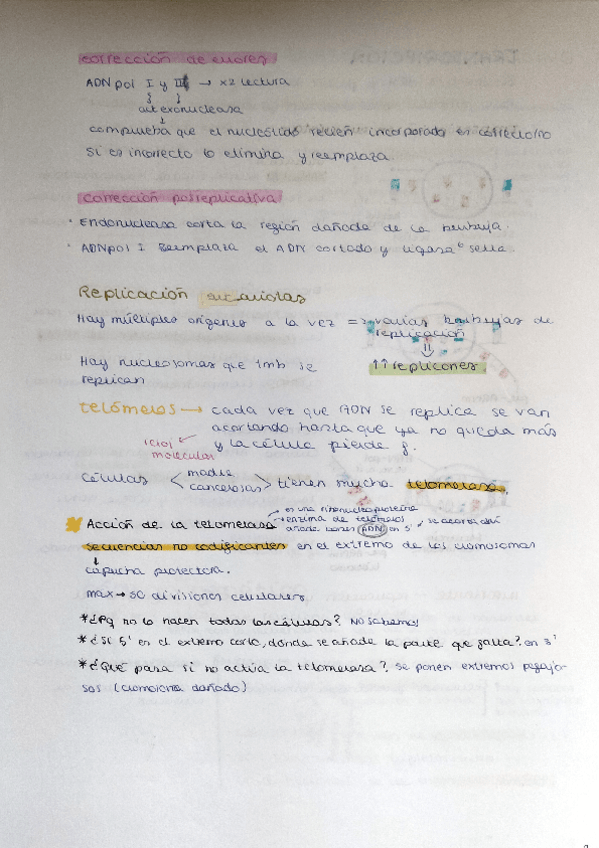 corrección de errores
ADN pol I y III → x2 lectura
act exonucleasa
comprueba que el nucleótido recién incorporado es correcto
Si es incorrecto lo elimina y reemplaza.
Corrección posreplicativa
· Endonucleasa corta la región dañada de la burbuja.
· ADNpol I Reemplaza el ADN cortado y ligasa sella.
Replicación eucariotas
Hay múltiples orígenes a la vez => varias burbujas de
replicación
Hay nucleosomas que tmb se
replican
↑↑ replicones
telómeros → cada vez que ADN se replica se van
acortando hasta que ya no queda más
y la célula pierde f.
reloj
molecular
células < madre
cancerosas > tienen mucha telomerasa.
Acción de la telomerasa → es una ribonucleoproteína
→ enzima de telómeros
añade bases ADN en 3'
secuencias no codificantes en el extremo de los cromosomas
capucha protectora.
max → 50 divisiones celulares
*¿Pq no lo hacen todas las células? No sabemos
*¿Si 5' en el extremo corto, dónde se añade la parte que falta? en 3'
*¿Qué pasa si no activa la telomerasa? Se ponen extremos pegajo-
sos (cromosoma dañado)